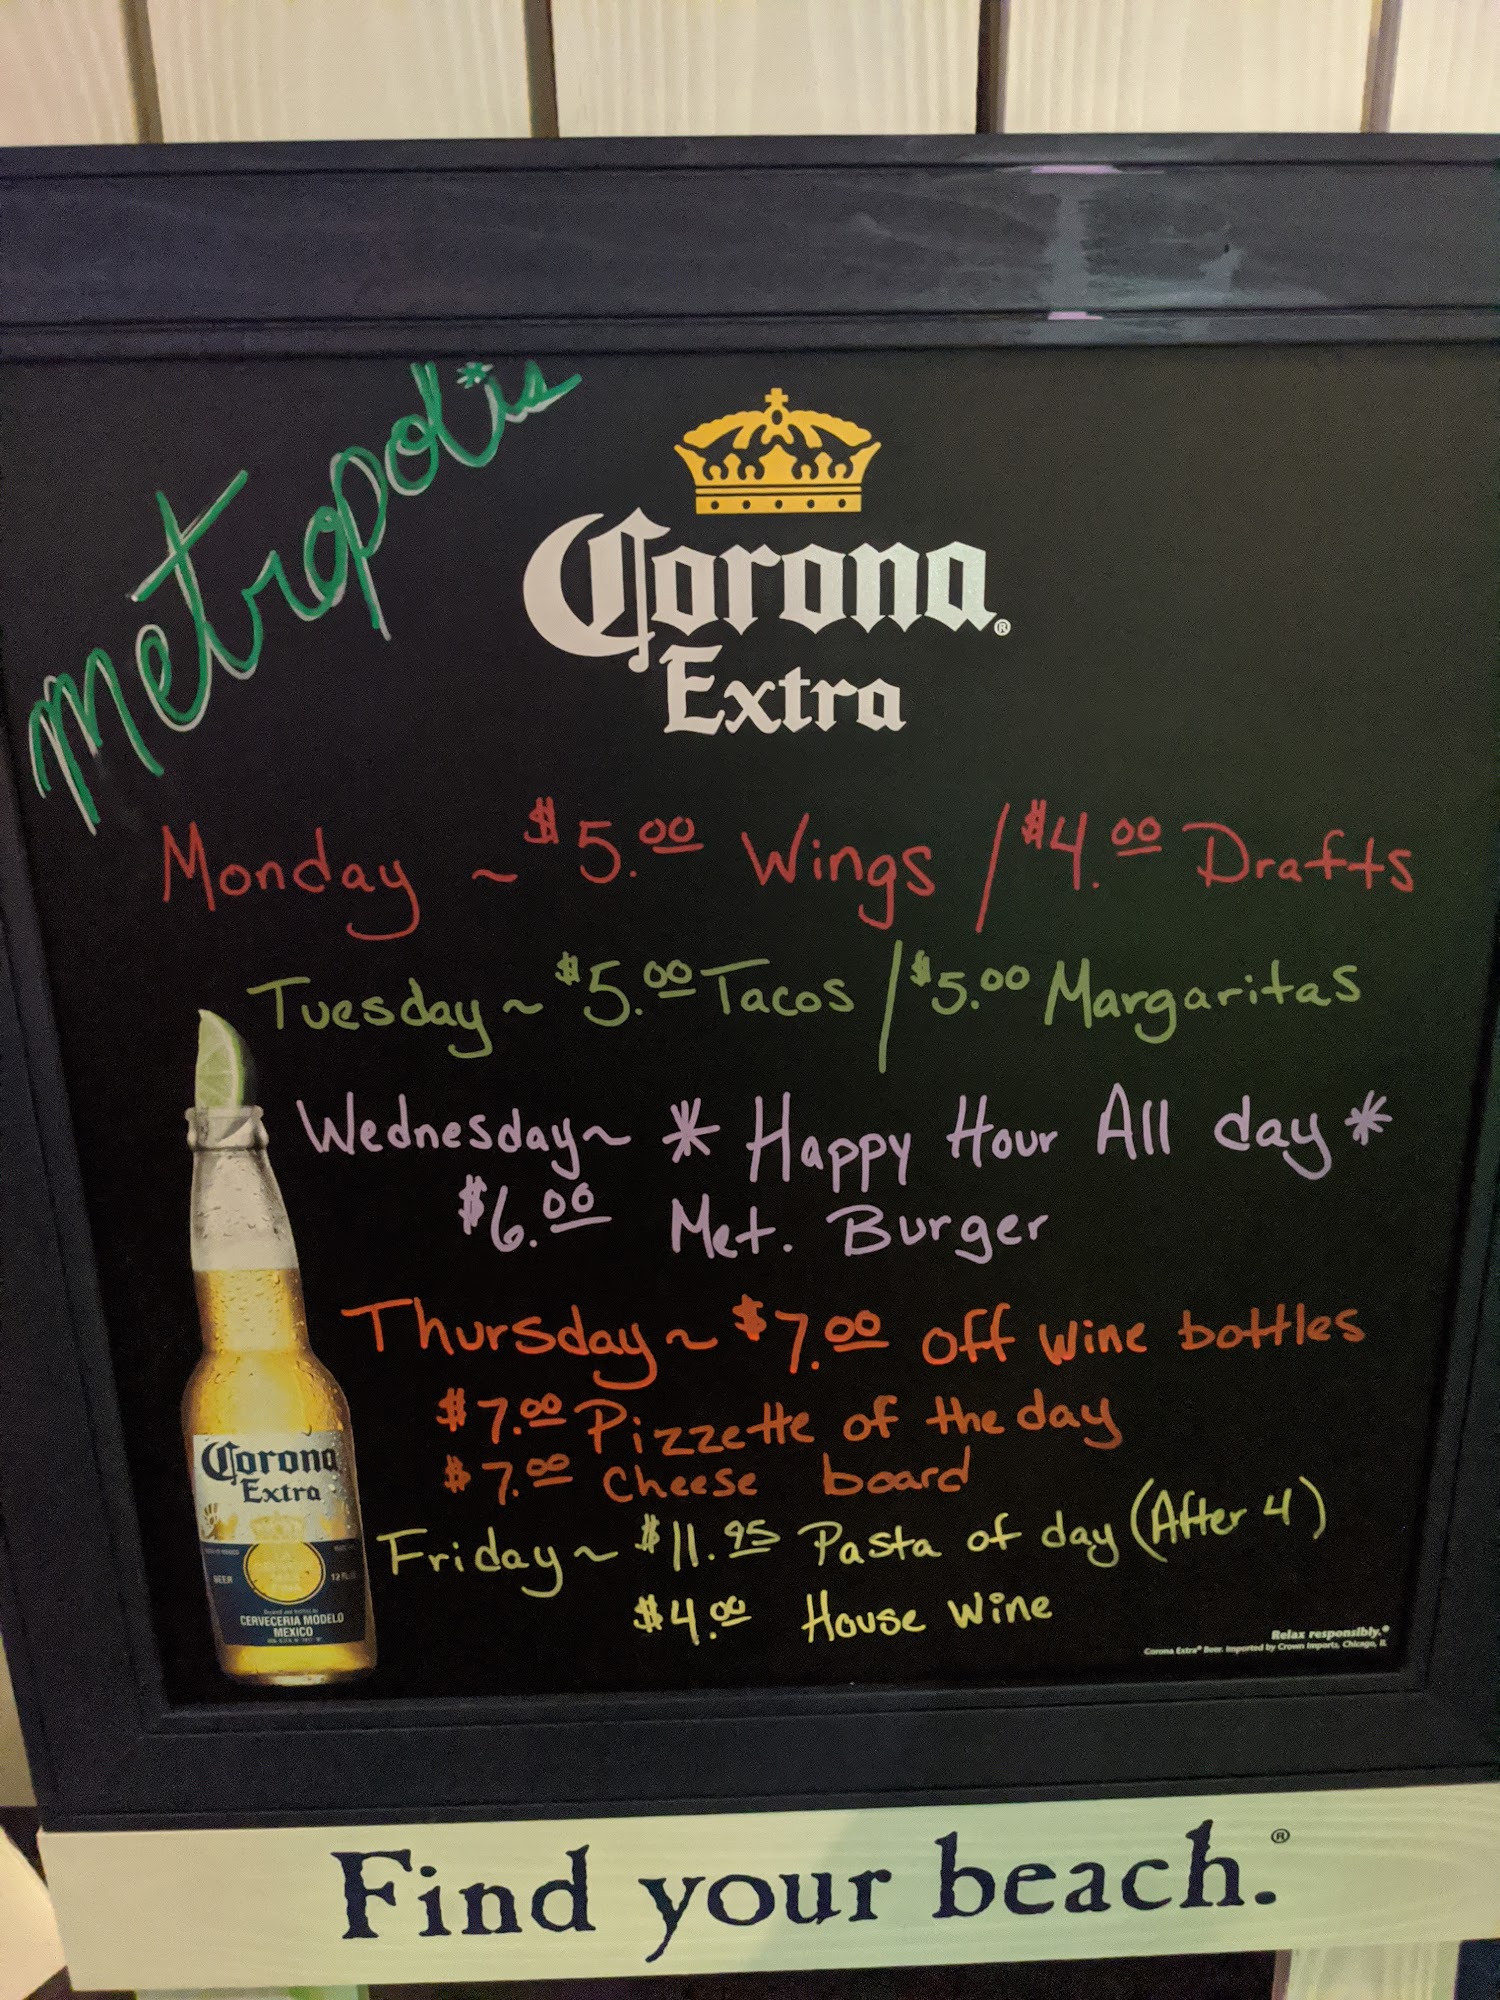 Metropolis
Corona®
Extra
Monday ~ $5.00 Wings / $4.00 Drafts
Tuesday ~ $5.00 Tacos / $5.00 Margaritas
Wednesday ~ * Happy Hour All day *
$6.00 Met. Burger
Thursday ~ $7.00 off wine bottles
$7.00 Pizzette of the day
$7.00 Cheese board
Friday ~ $11.95 Pasta of day (After 4)
$4.00 House Wine
Corona
Extra
BEER
CERVECERIA MODELO
MEXICO
Relax responsibly.®
Corona Extra® Beer. Imported by Crown Imports, Chicago, IL
Find your beach.®